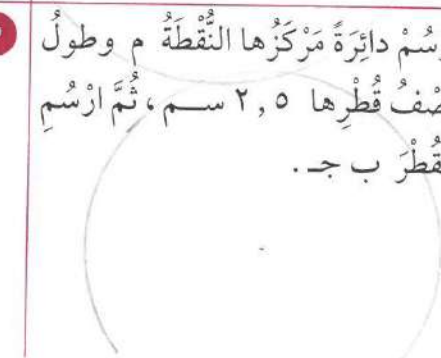 رْسُمْ دائِرَةً مَرْكَزُها النُّقْطَةُ م وطولُ
صْفُ قُطْرِها ٢,٥ ســم ، ثُمَّ ارْسُمِ
قُطْرَ ب جـ .